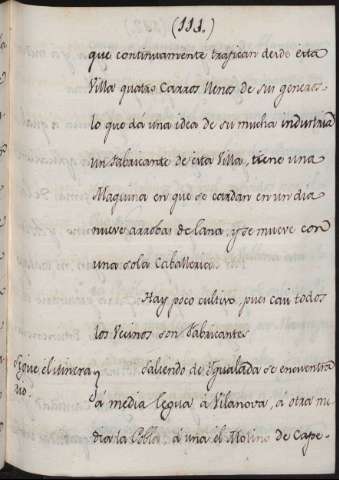 (111.)
que continuamente trafican desde esta
Villa quatro Carros llenos de sus generos.
lo que dá una idea de su mucha industria
un fabricante de esta Villa, tiene una
Maquina en que se cardan en un dia
nueve arrobas de lana, y se mueve con
una sola Caballeria.
Hay poco cultivo, pues casi todos
los Vecinos son fabricantes
Sigue el itinera
rio.
Saliendo de Igualada se encuentra
á media legua á Vilanova, á otra me
dia la Pobla, á una el Molino de Cape-